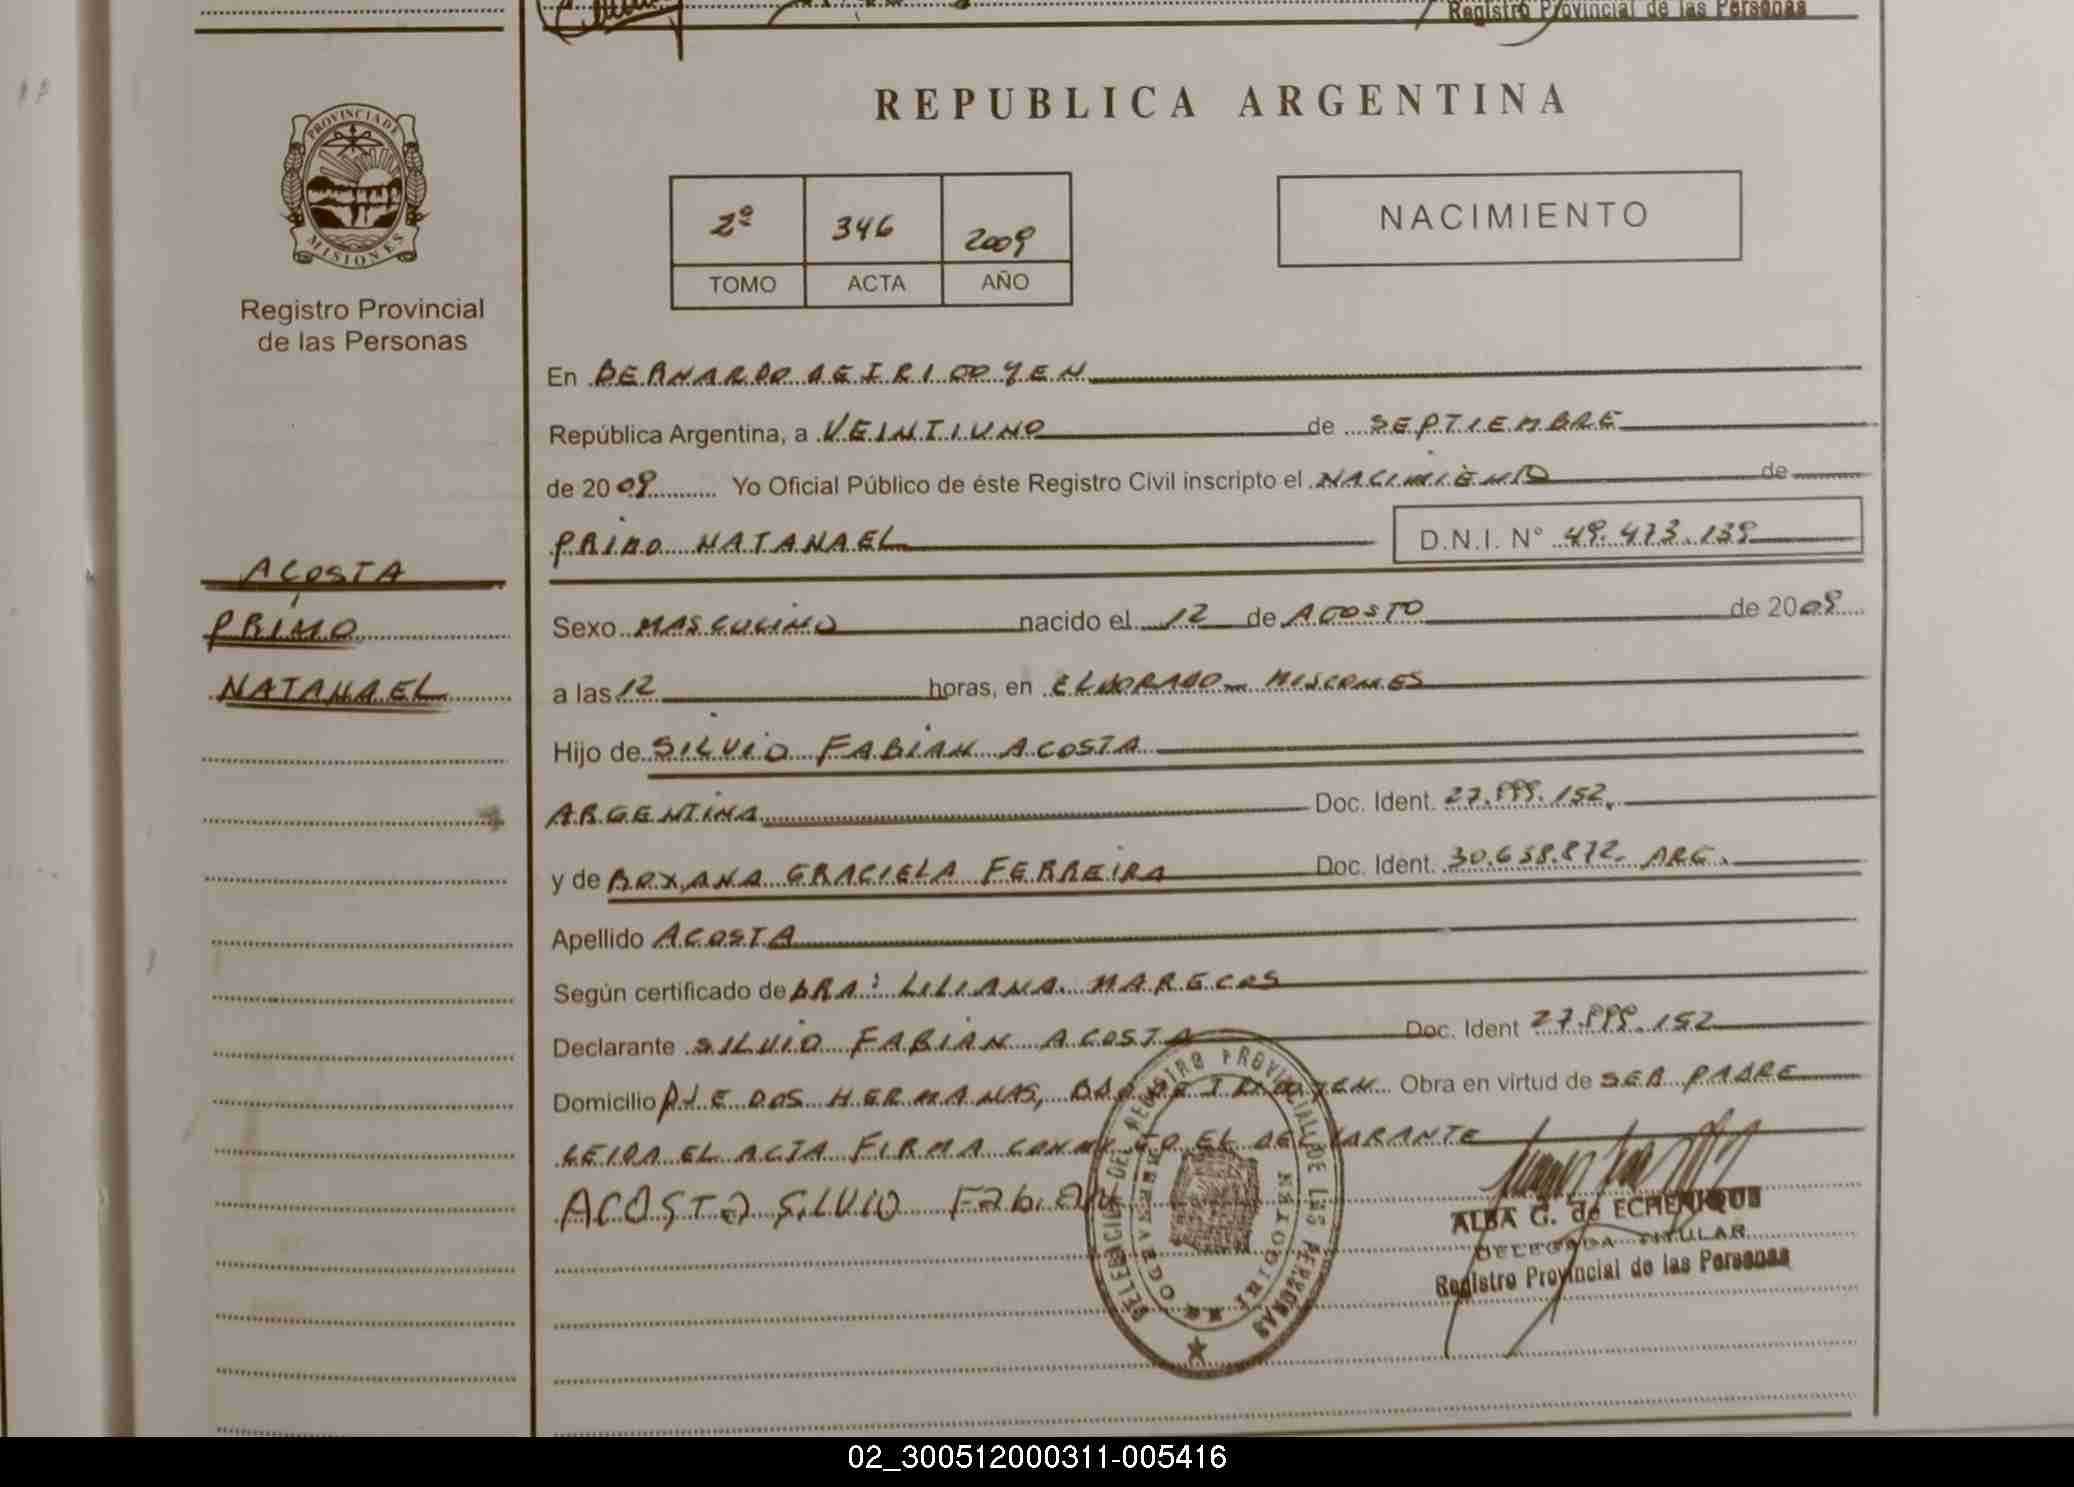 Registro Provincial de las Personas
REPUBLICA ARGENTINA
PROVINCIA DE
MISIONES
Registro Provincial
de las Personas
2º 346 2009
TOMO ACTA AÑO
NACIMIENTO
En BERNARDO DE IRIGOYEN
República Argentina, a VEINTIUNO de SEPTIEMBRE
de 2009 Yo Oficial Público de éste Registro Civil inscripto el NACIMIENTO de
PRIMO NATANAEL D.N.I. N° 49.473.139
ACOSTA
PRIMO
NATANAEL
Sexo MASCULINO nacido el 12 de AGOSTO de 2009
a las 12 horas, en ELDORADO MISIONES
Hijo de SILVIO FABIAN ACOSTA
ARGENTINA Doc. Ident. 27.999.152
y de ROXANA GRACIELA FERREIRA Doc. Ident. 30.638.872 ARG.
Apellido ACOSTA
Según certificado de DRA: LILIANA MARECOS
Declarante SILVIO FABIAN ACOSTA Doc. Ident 27.999.152
Domicilio PJE DOS HERMANAS, BDO DE IRIGOYEN Obra en virtud de SER PADRE
LEIDA EL ACTA FIRMA CONMIGO EL DECLARANTE
ACOSTA SILVIO Fabian
DELEGACION DEL REGISTRO PROVINCIAL DE LAS PERSONAS
BERNARDO DE IRIGOYEN
ALBA G. de ECHENIQUE
DELEGADA TITULAR
Registro Provincial de las Personas
02_300512000311-005416